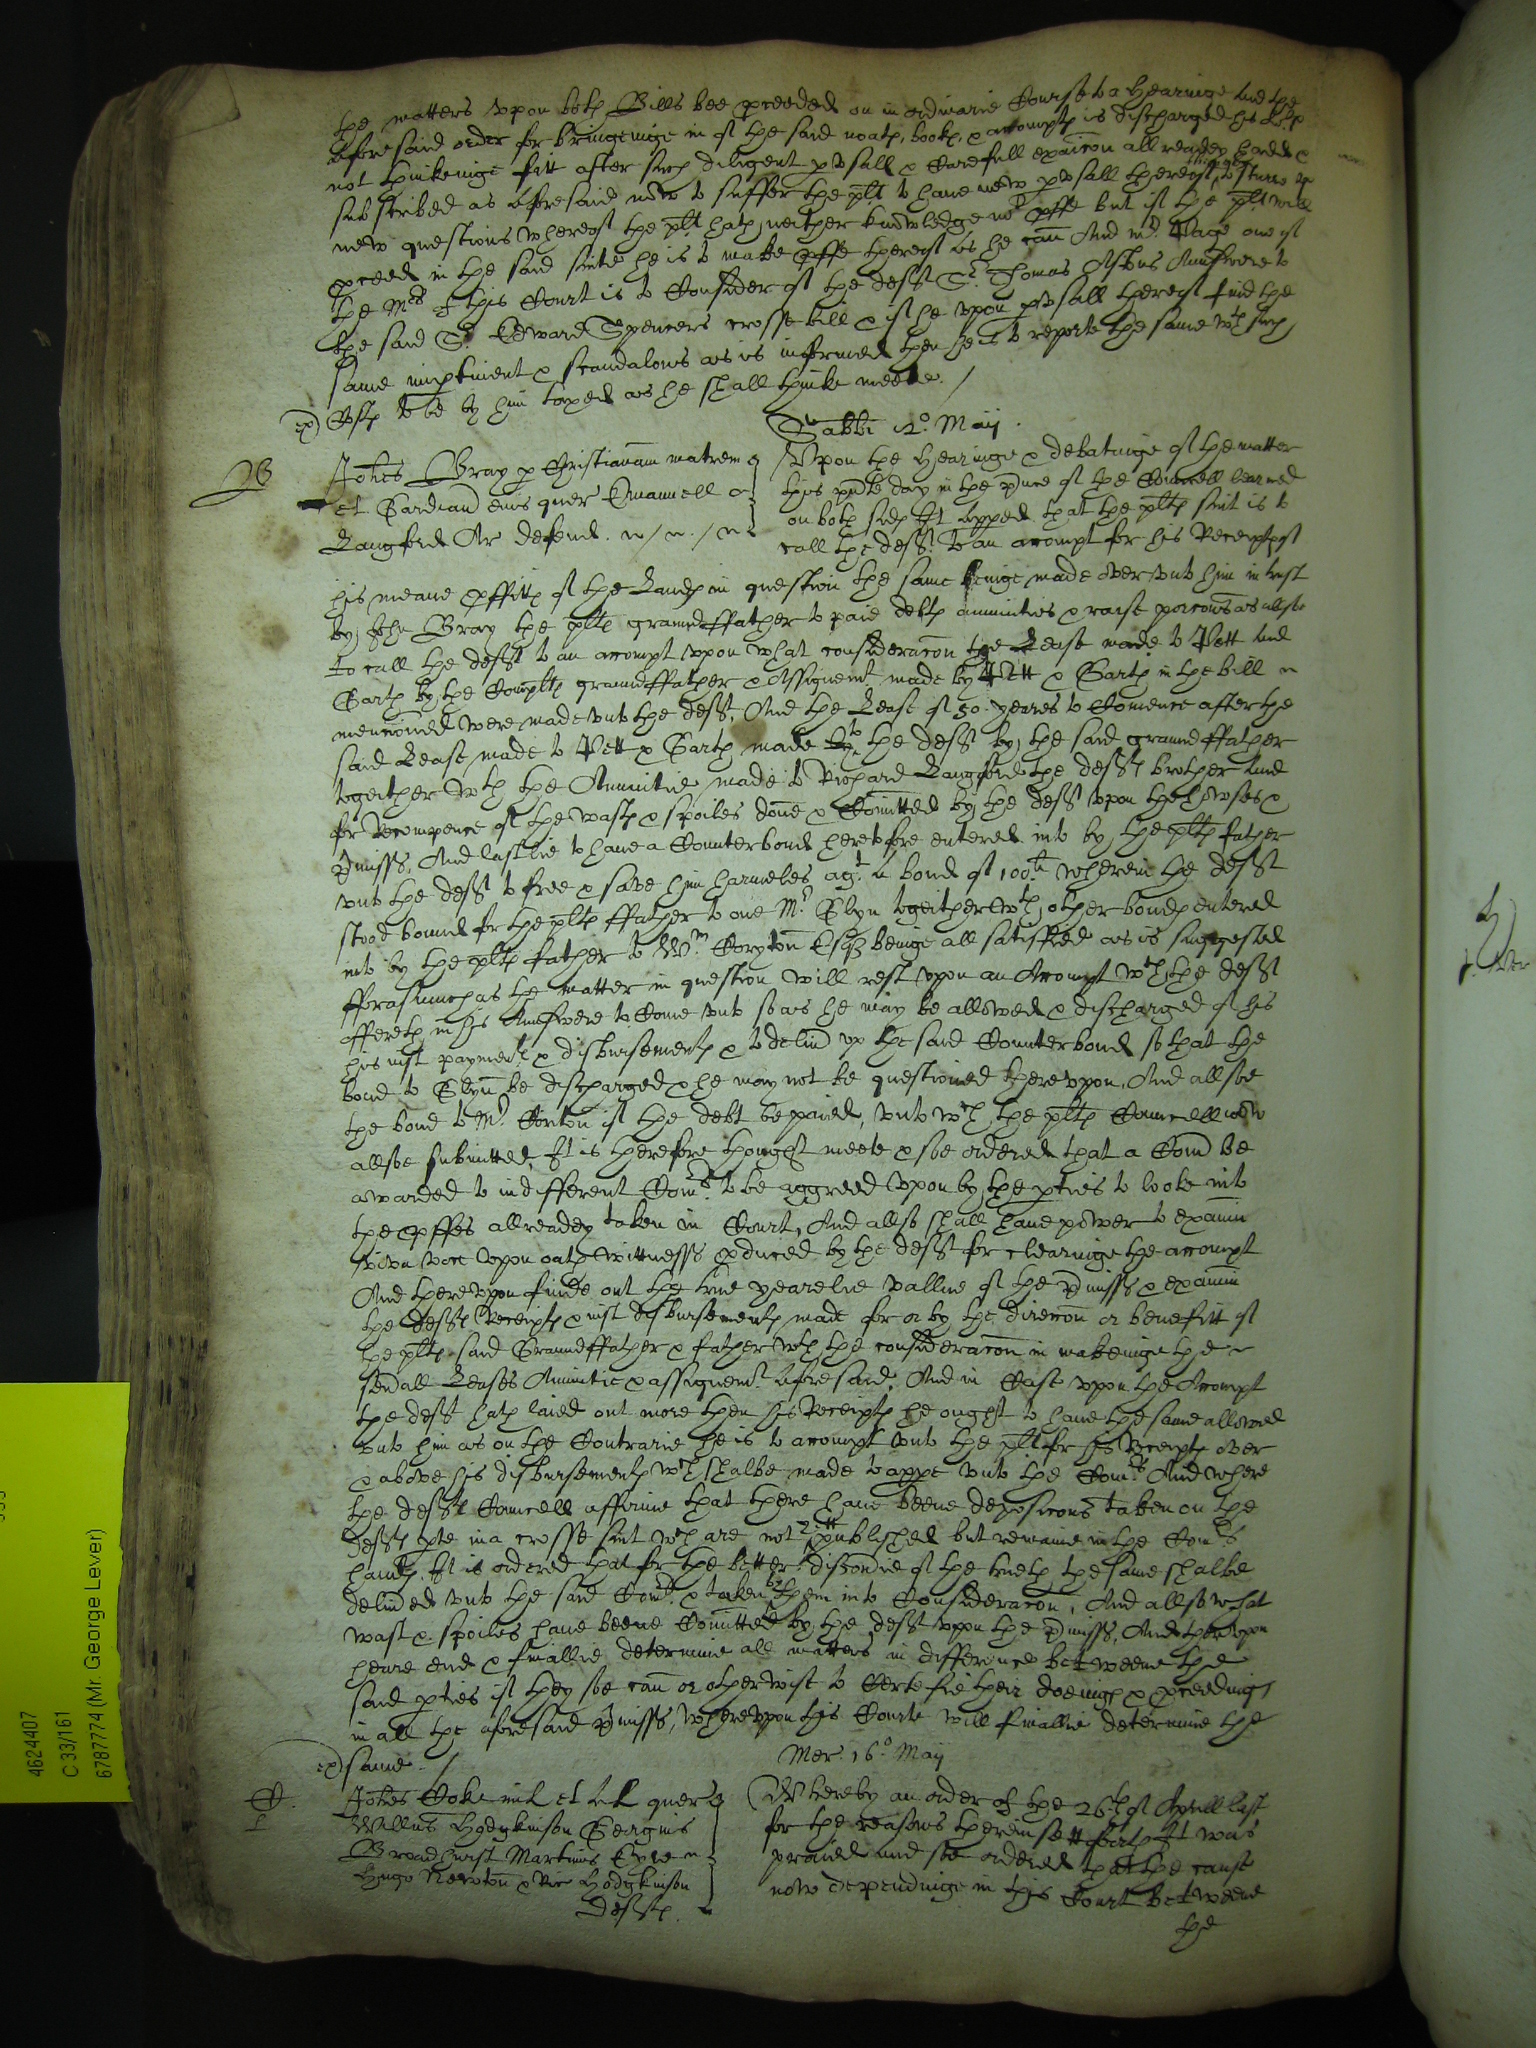 the matters upon both Bills bee pceeded on in ordinarie Course to a Hearinge And the
aforesaid order for bringeinge in of the said noats, books, & accompts is discharged his Lo:pp
not thinkeinge fitt after such diligent pusall & Carefull exaicon allready hadd &
subscribed as aforesaid now to suffer the plt to have new pusall thereof, thinge to stirre up
new questions whereof the plt hath neither knowledge nor pffe but if the plt will
pceed in the said suite he is to make pffe thereof as he can And mr Page one of
the Mrs of this Court is to Consider of the deft Sr Thomas Ashtons Aunswere to
the said Sr Edward Spencers crosse bill & if he upon pusall thereof find the
same impertinent & scandalous as is informed then he is to reporte the same wth such
Costs to be by him taxed as he shall thinke meete. /
ex)
Sabbi 12o Maij.
B
Johes Bray p Christianam matrem
et Gardian eius quer Emanuell
Langford Ar defend.
Upon the Hearinge & debatinge of the matter
this pnte day in the pnce of the Councell learned
on both sides It appeed that the plts suit is to
call the deft to an accompt for his Receipts of
his meane pffitts of the Lands in question the same beinge made over unto him in trust
by John Bray the plts grandffather to paie debts annuities & raise porcons as allsoe
to call the deft to an accompt upon what consideracon the Lease made to Pett And
Garth by the Complts graundffather & Assignemt made by Pett & Garth in the bill
mencioned were made unto the deft, And the Lease of 50 yeares to Comence after the
said Lease made to Pett & Garth made to the deft by the said graundffather
togeither wth the Annuitie made to Richard Langford the defts brother And
for Recompence of the wasts & spoiles done & Comitted by the deft upon the howses &
pmisses, And lastlie to have a Counterbond heretofore entered into by the plts father
unto the deft to free & save him harmeles agt a bond of 100li wherein the deft
stood bound for the plts ffather to one Mr Glyn togeither wth other bonds entered
into by the plts father to Wm Coryton Esqr beinge all satisfied as is suggested
fforasmuch as the matter in question will rest upon an Accompt wch the deft
offereth in his Aunswere to Come unto so as he may be allowed & discharged of his
his just payments & disbursements & to delivr up the said Counterbond so that the
bond to Glyn be discharged & he may not be questioned thereupon, And allsoe
the bond to Mr Coriton if the debt be paied, unto wch the plts Councell now
allsoe submitted, It is therefore thought meete & soe ordered that a Comn be
awarded to indifferent Comrs to be aggreed upon by the pties to looke into
the pffes allready taken in Court, And allso shall have power to examin
viva voce upon oath wittnesses pduced by the deft for clearinge the accompt
And thereupon finde out the true yearelie vallue of the pmisses & examin
the defts Receipts & just disbursements made for or by the direccon or benefitt of
the plts said Graundffather & father wth the consideracon in makeinge the
sevall Leases Annuitie & assignemt aforesaid, And in Case upon the Accompt
the deft hath laied out more then his Receipts he ought to have the same allowed
unto him as on the Contrarie he is to accompt unto the plt for his Receipts over
& above his disbursements wch shalbe made to appe unto the Comrs And where
the defts Councell affirme that there have beene deposicons taken on the
defts pte in a crosse suit wch are not yett published but remaine in the Comrs
hands, It is ordered that for the better discovie of the trueth the same shalbe
delived unto the said Comrs & taken by them into Consideracon, And allso what
wast & spoiles have beene Comitted by the deft upon the pmisses, And thereupon
heare end & finallie determine all matters in difference betweene the
said pties if they soe can or otherwise to Certefie their doeings & pceedings
in all the aforesaid pmisses, whereupon this Courte will finallie determine the
ex) same. /
Mer. 16o Maij
C.
Johes Coke mil et al quer
Willus Hodgkinson Georgius
Broadhurst Martinus Eyre
Hugo Newton & Ric Hodgkinson
defts.
Whereby an order of the 26th of Aprill last
for the reasons therein sett forth It was
praied and soe ordered that the cause
now dependinge in this Court betweene
the
4624407
C 33/161
6787774 (Mr. George Lever)